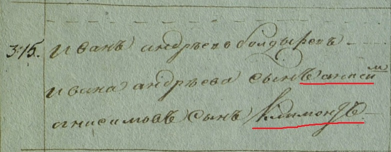 315. Иванъ андрѣевъ болдыревъ
Ивана андрѣева сынъ анисим
анисимовъ сынъ Климонтъ